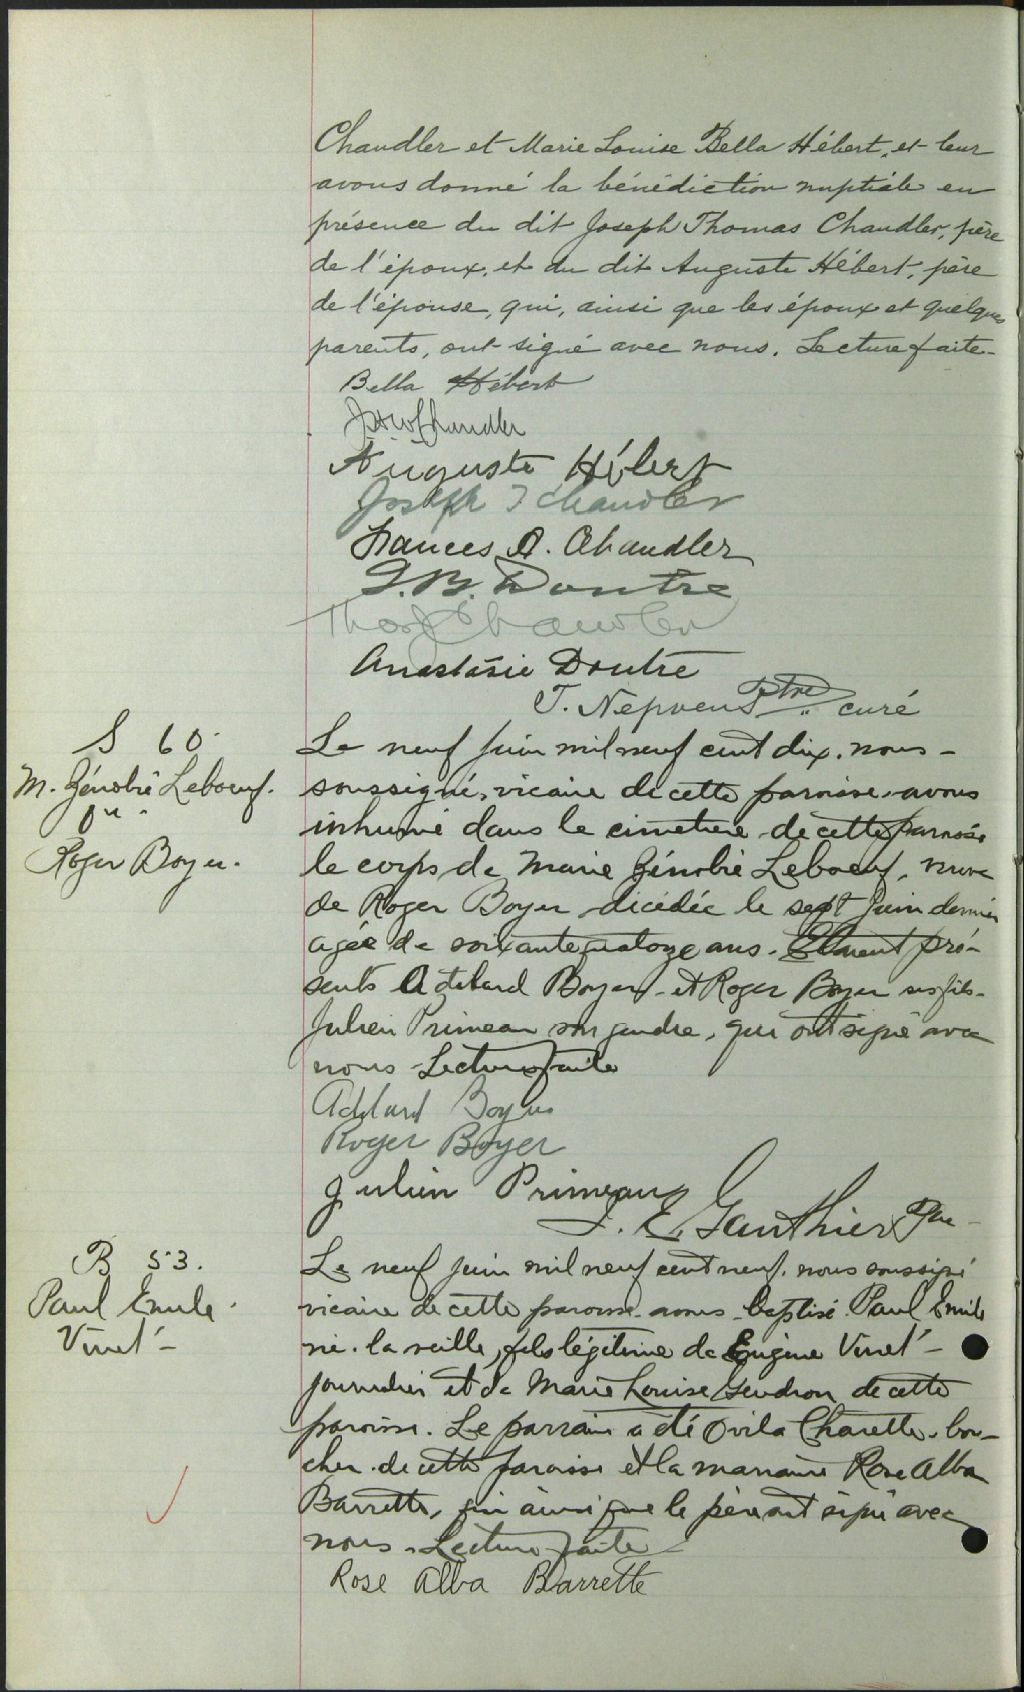 Chandler et Marie Louise Bella Hébert, et leur
avons donné la bénédiction nuptiale en
présence du dit Joseph Thomas Chandler, père
de l'époux, et du dit Auguste Hébert, père
de l'épouse, qui, ainsi que les époux et quelques
parents, ont signé avec nous. Lecture faite-
Bella Hébert
Chandler
Auguste Hébert
Joseph T Chandler
Frances A. Chandler
J. B. Doutre
Thos Chandler
Anastasie Doutre
T. Nepveu Ptre curé
S 60.
M. Zénobie Leboeuf.
Roger Boyer.
Le neuf juin mil neuf cent dix. nous-
soussigné, vicaire de cette paroisse, avons
inhumé dans le cimetière de cette paroisse
le corps de Marie Zénobie Leboeuf, veuve
de Roger Boyer décédée le sept juin dernier
agée de soixante quatorze ans. Etaient pré-
sents Adélard Boyer et Roger Boyer ses fils-
Julien Primeau son gendre, qui ont signé avec
nous Lecture faite
Adélard Boyer
Roger Boyer
Julien Primeau
J. E. Gauthier Ptre
B 53.
Paul Emile
Vinet-
Le neuf juin mil neuf cent neuf. nous soussigné
vicaire de cette paroisse avons baptisé Paul Emile
né la veille, fils légitime de Eugène Vinet-
journalier et de Marie Louise Gendron de cette
paroisse. Le parrain a été Ovila Charette, bou-
cher de cette paroisse et la marraine Rose Alba
Barrette, qui ainsi que le père ont signé avec
nous. Lecture faite
Rose Alba Barrette